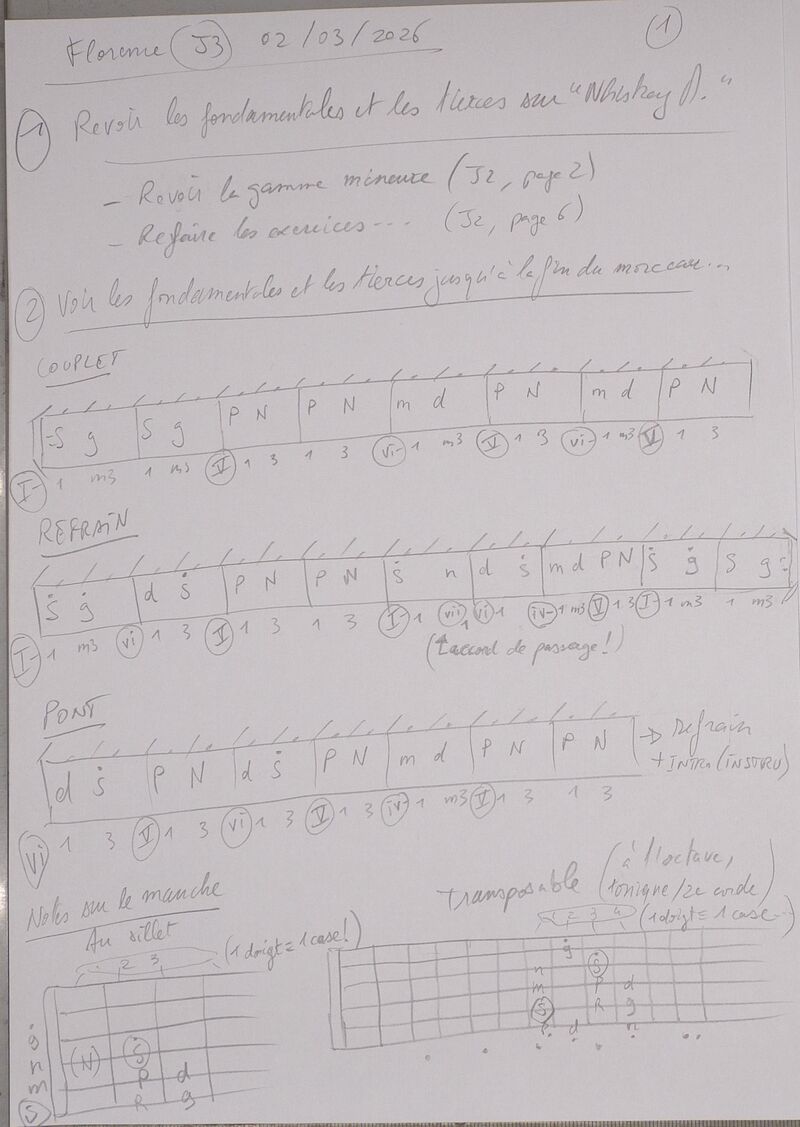 Florence J3 02/03/2026
1
1 Revoir les fondamentales et les tierces sur "Whiskey A."
- Revoir la gamme mineure (J2, page 2)
- Refaire les exercices... (J2, page 6)
2 Voir les fondamentales et les tierces jusqu'à la fin du morceau...
COUPLET
S g S g P N P N m d P N m d P N
I- 1 m3 1 m3 V 1 3 1 3 1 m3 V 1 3 1 m3 V 1 3
REFRAIN
Ṡ ġ d Ṡ P N P N Ṡ n d Ṡ m d P N Ṡ ġ S g
I- 1 m3 vi 1 3 V 1 3 1 3 I- 1 vii 1 vi 1 iv- 1 m3 V 1 3 I- 1 m3 1 m3
(↑ accord de passage!)
PONT
d Ṡ P N d Ṡ P N m d P N P N → Refrain
+ INTRO (INSTRU)
vi 1 3 V 1 3 vi 1 3 V 1 3 iv- 1 m3 V 1 3 1 3
Notes sur le manche
Au sillet
(1 doigt = 1 case!)
2 3
ġ
n (N) Ṡ
m P d
S R g
transposable (à l'octave,
tonique/2e corde)
1 2 3 4 (1 doigt = 1 case...)
ġ
n Ṡ
m P d
S R g
d n